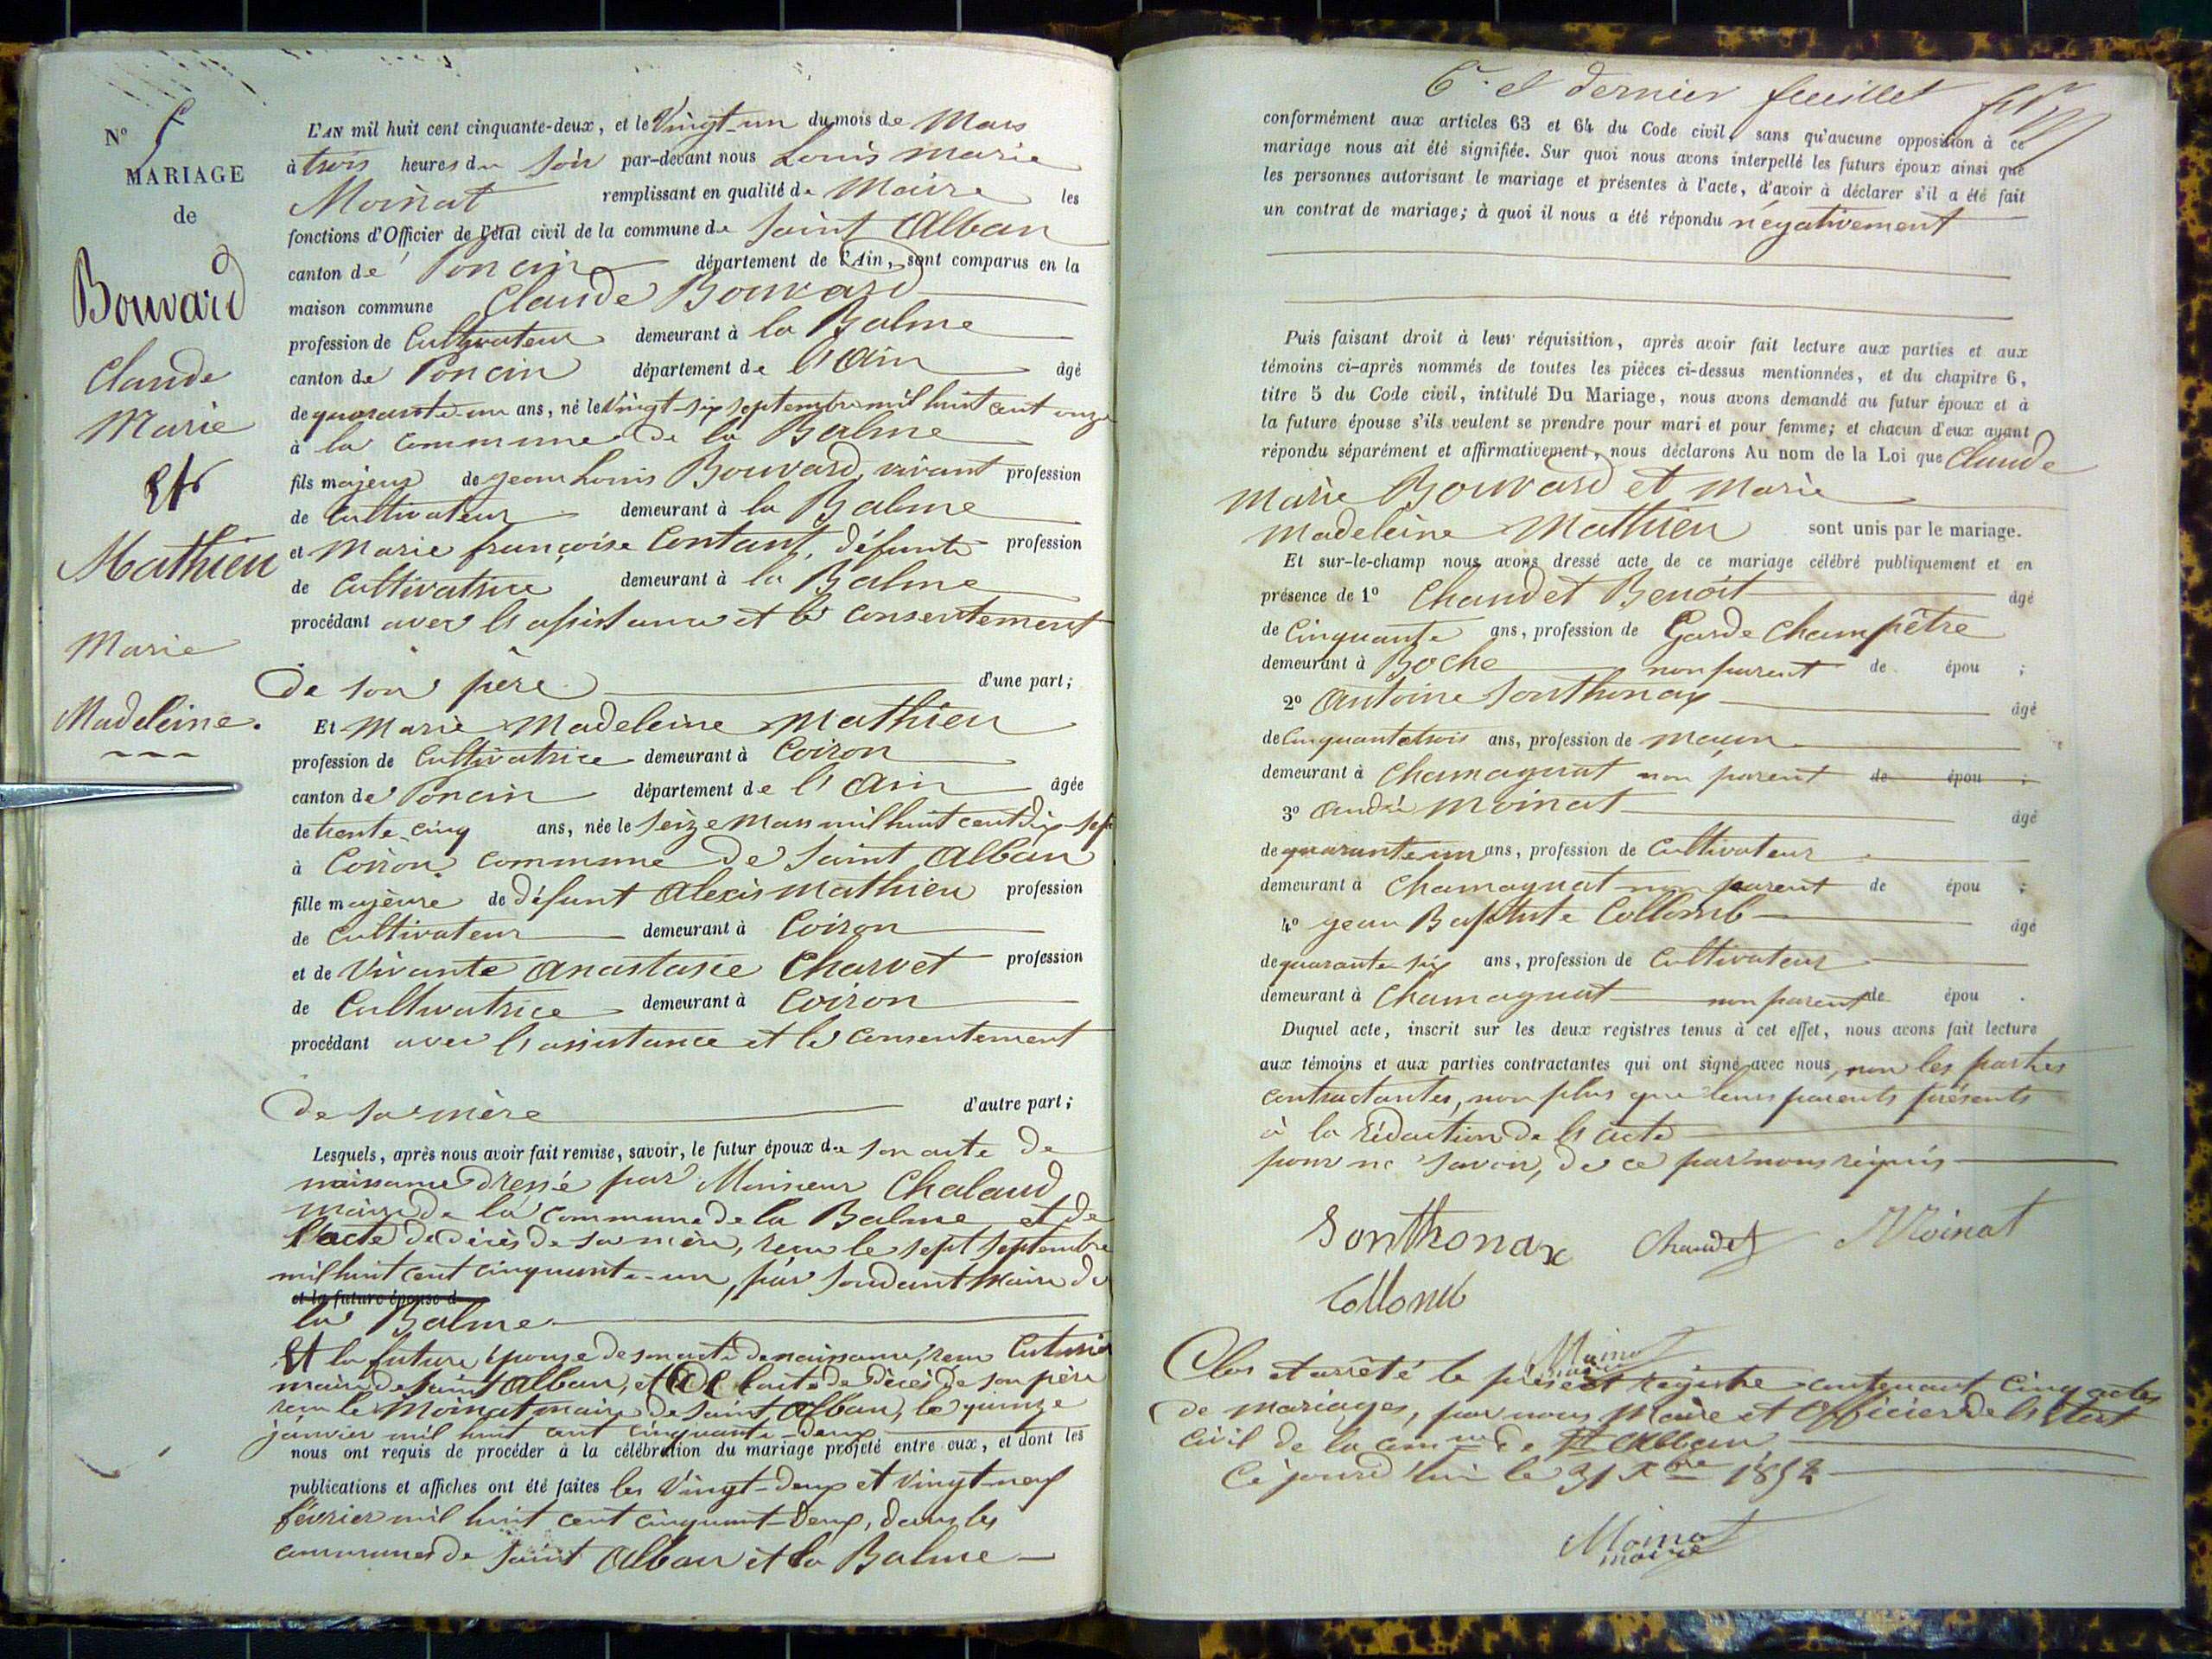 N° 5
MARIAGE
de
Bouvard
Claude
Marie
Et
Mathieu
Marie
Madeleine.
L'AN mil huit cent cinquante-deux, et le Vingt-un du mois de Mars
à trois heures du soir par-devant nous Louis Marie
Moinat remplissant en qualité de Maire les
fonctions d'Officier de l'état civil de la commune de Saint Alban
canton de Poncin département de l'Ain, sont comparus en la
maison commune Claude Bouvard
profession de Cultivateur demeurant à la Balme
canton de Poncin département de l'Ain âgé
de quarante-un ans, né le vingt-six septembre mil huit cent onze
à la commune de la Balme
fils majeur de jean Louis Bouvard, vivant profession
de Cultivateur demeurant à la Balme
et Marie françoise Contant, défunte profession
de Cultivatrice demeurant à la Balme
procédant avec l'assistance et le consentement
de son père d'une part;
Et Marie Madeleine Mathieu
profession de Cultivatrice demeurant à Coiron
canton de Poncin département de l'Ain âgée
de trente cinq ans, née le seize Mars mil huit cent dix-sept
à Coiron commune de Saint Alban
fille majeure de défunt Alexis Mathieu profession
de Cultivateur demeurant à Coiron
et de Vivante Anastasie Charvet profession
de Cultivatrice demeurant à Coiron
procédant avec l'assistance et le consentement
de sa mère d'autre part;
Lesquels, après nous avoir fait remise, savoir, le futur époux de son acte de
naissance dressé par Monsieur Chaland
maire de la commune de la Balme et de
l'acte de décès de sa mère, reçu le sept septembre
mil huit cent cinquante-un, par Maire de
et la future épouse d
la Balme
Et la future épouse de son acte de naissance, reçu
maire de Saint Alban, et de l'acte de décès de son père
reçu le Moinat maire de Saint Alban, le quinze
janvier mil huit cent cinquante-deux
nous ont requis de procéder à la célébration du mariage projeté entre eux, et dont les
publications et affiches ont été faites les Vingt-deux et Vingt-neuf
février mil huit cent cinquant-deux, dans les
communes de Saint Alban et la Balme
6e et dernier feuillet
conformément aux articles 63 et 64 du Code civil, sans qu'aucune opposition à ce
mariage nous ait été signifiée. Sur quoi nous avons interpellé les futurs époux ainsi que
les personnes autorisant le mariage et présentes à l'acte, d'avoir à déclarer s'il a été fait
un contrat de mariage; à quoi il nous a été répondu négativement
Puis faisant droit à leur réquisition, après avoir fait lecture aux parties et aux
témoins ci-après nommés de toutes les pièces ci-dessus mentionnées, et du chapitre 6,
titre 5 du Code civil, intitulé Du Mariage, nous avons demandé au futur époux et à
la future épouse s'ils veulent se prendre pour mari et pour femme; et chacun d'eux ayant
répondu séparément et affirmativement, nous déclarons Au nom de la Loi que Claude
Marie Bouvard et Marie
Madeleine Mathieu sont unis par le mariage.
Et sur-le-champ nous avons dressé acte de ce mariage célébré publiquement et en
présence de 1° Chaudet Benoit âgé
de Cinquante ans, profession de Garde Champêtre
demeurant à Boche non parent de épou ;
2° Antoine Sonthonax âgé
de Cinquante trois ans, profession de maçon
demeurant à Chamagnat non parent de épou ;
3° André Moinat âgé
de quarante un ans, profession de Cultivateur
demeurant à Chamagnat non parent de épou ;
4° jean Baptiste Collomb âgé
de quarante six ans, profession de Cultivateur
demeurant à Chamagnat non parent de épou .
Duquel acte, inscrit sur les deux registres tenus à cet effet, nous avons fait lecture
aux témoins et aux parties contractantes qui ont signé avec nous, non les parties
contractantes, non plus que leurs parents présents
à la rédaction de l'acte
pour ne savoir, de ce par nous requis
Sonthonax Chaudet Moinat
Collomb
Moinat
maire
Clos et arrêté le présent registre contenant cinq actes
de mariages, par nous Maire et Officier de l'Etat
civil de la comune de St Alban,
Ce jourd'hui le 31 Xbre 1852
Moinat
maire